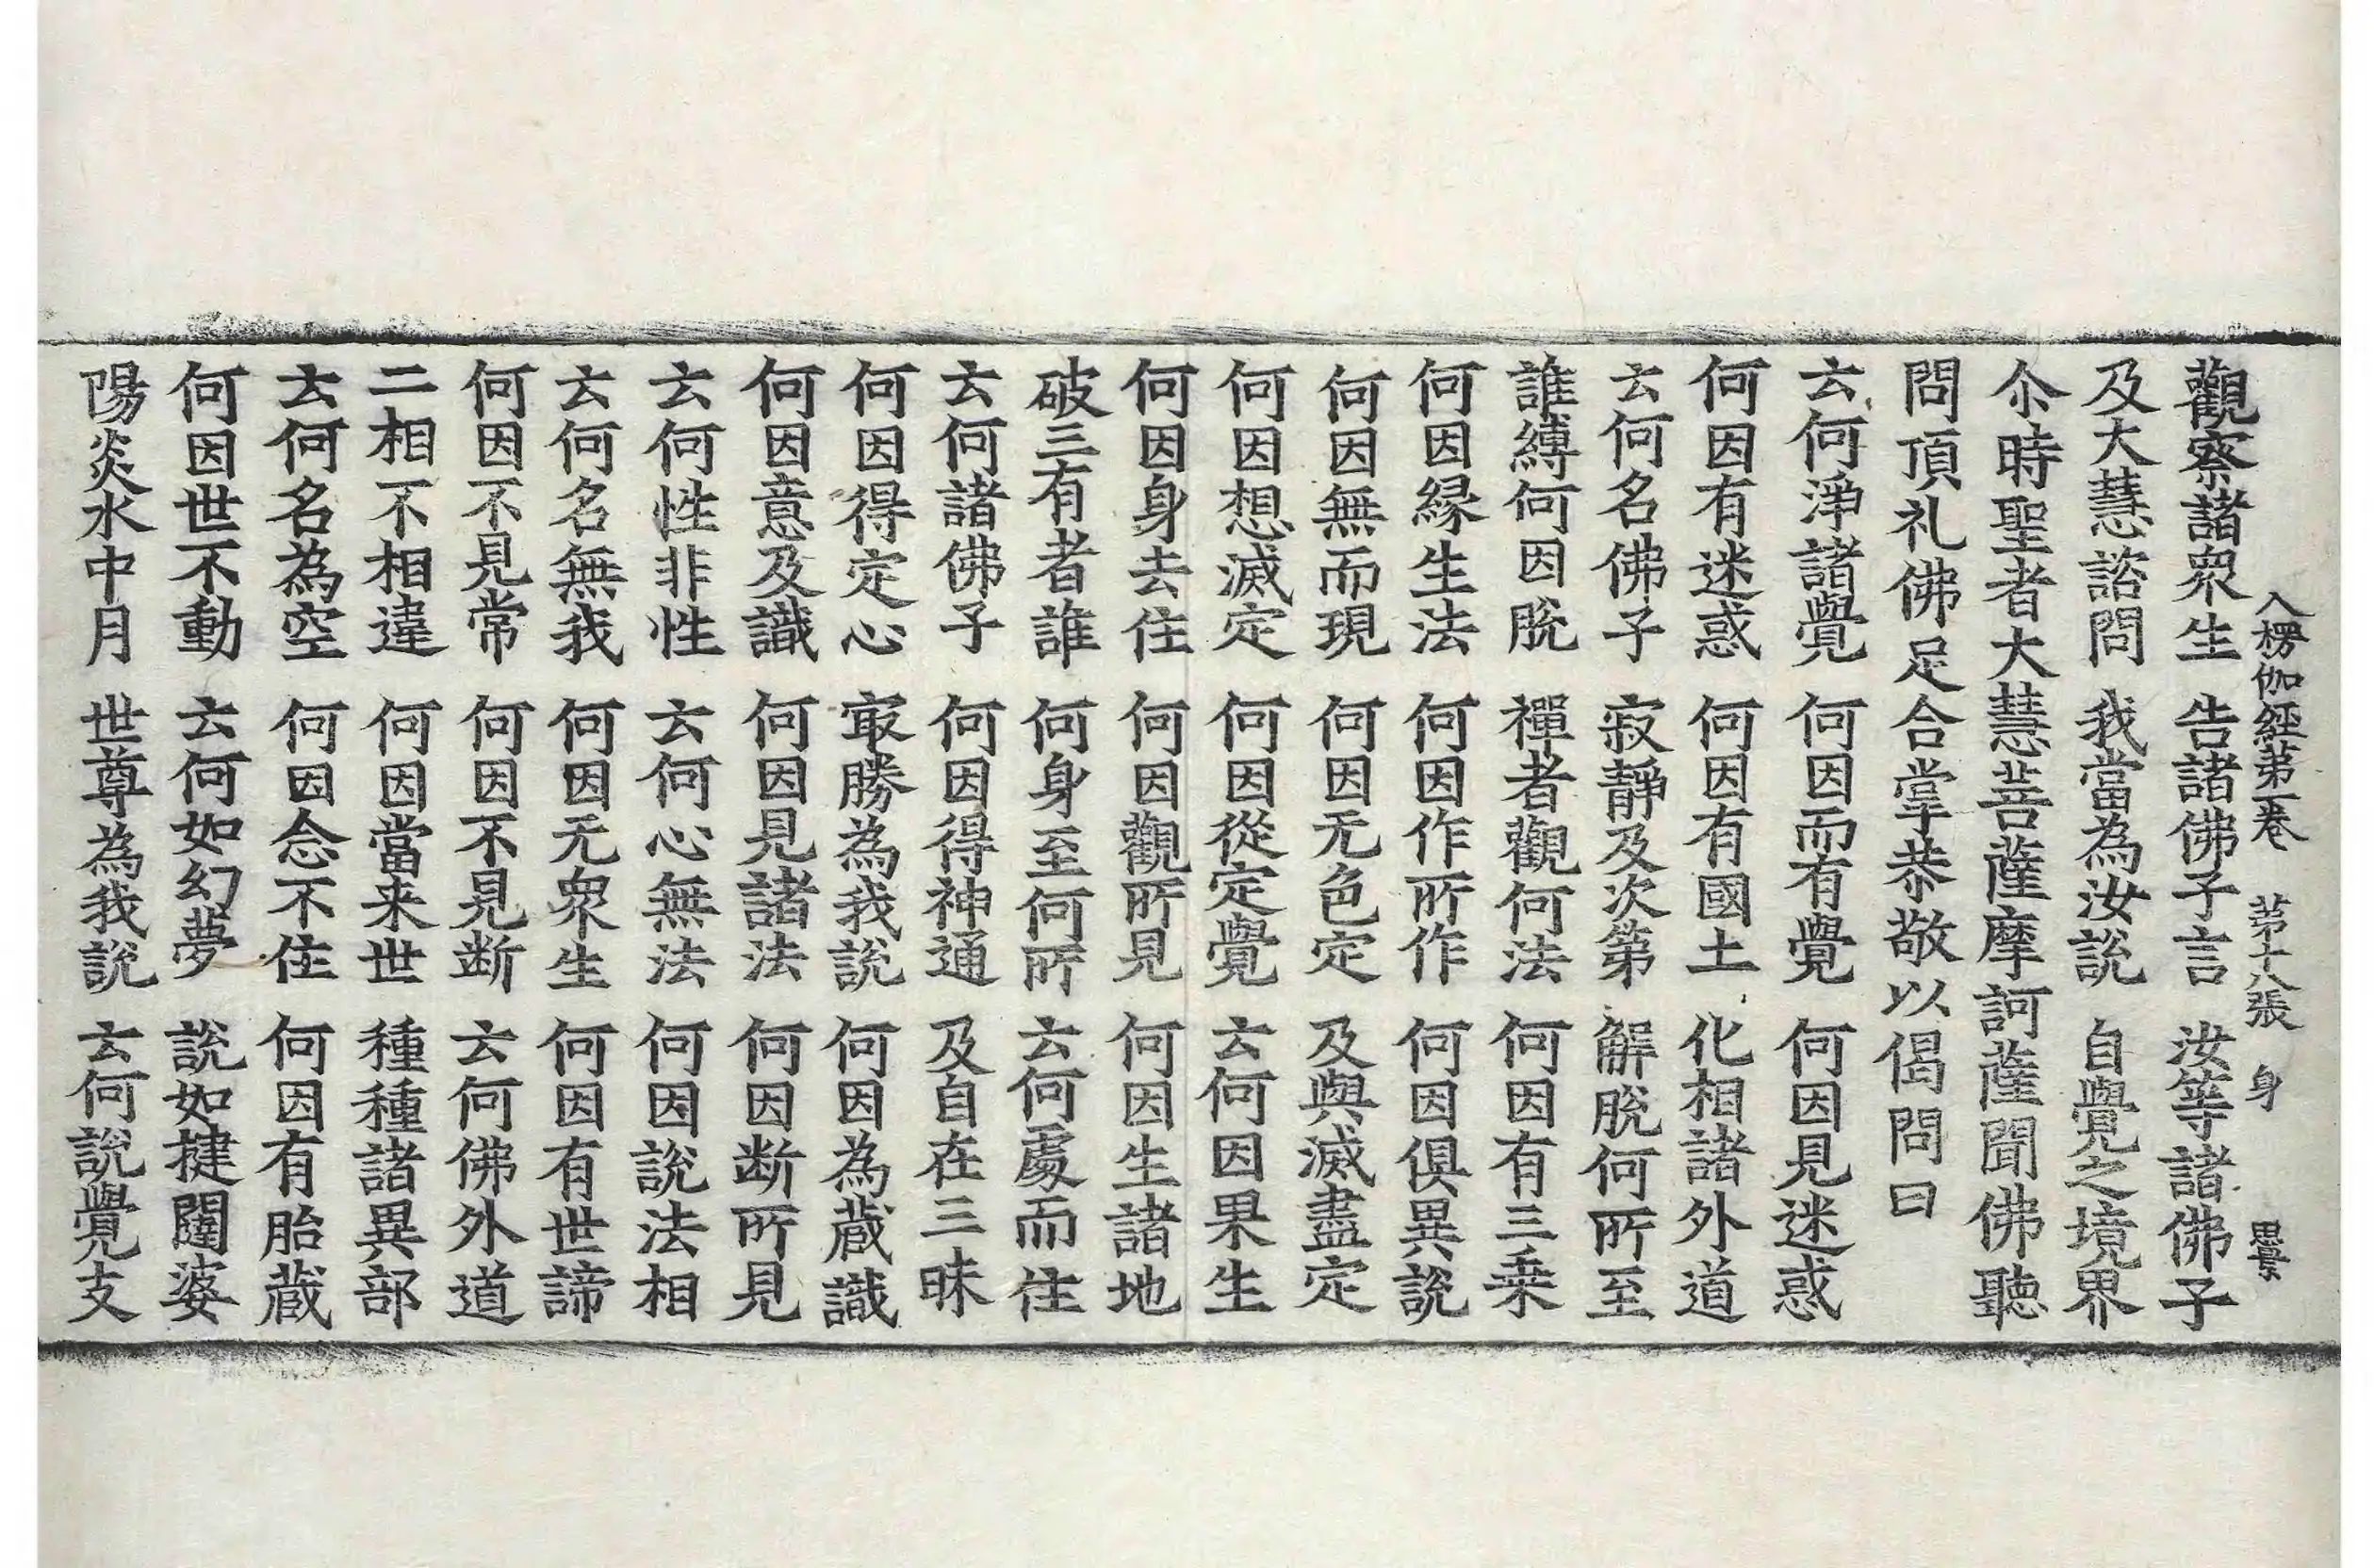 入楞伽經第一卷　第十八張　身　思㝵
觀察諸衆生　告諸佛子言　汝等諸佛子
及大慧諮問　我當為汝説　自覺之境界
尒時聖者大慧菩薩摩訶薩聞佛聽
問頂礼佛足合掌恭敬以偈問曰
云何淨諸覺　何因而有覺　何因見迷惑
何因有迷惑　何因有國土　化相諸外道
云何名佛子　寂靜及次第　解脫何所至
誰縛何因脫　禪者觀何法　何因有三乗
何因縁生法　何因作所作　何因俱異説
何因無而現　何因无色定　及與滅盡定
何因想滅定　何因從定覺　云何因果生
何因身去住　何因觀所見　何因生諸地
破三有者誰　何身至何所　云何處而住
云何諸佛子　何因得神通　及自在三昧
何因得定心　㝡勝為我説　何因為蔵識
何因意及識　何因見諸法　何因断所見
云何性非性　云何心無法　何因説法相
云何名無我　何因无衆生　何因有世諦
何因不見常　何因不見断　云何佛外道
二相不相違　何因當来世　種種諸異部
云何名為空　何因念不住　何因有胎蔵
何因世不動　云何如幻夢　説如揵闥婆
陽炎水中月　世尊為我説　云何説覺支